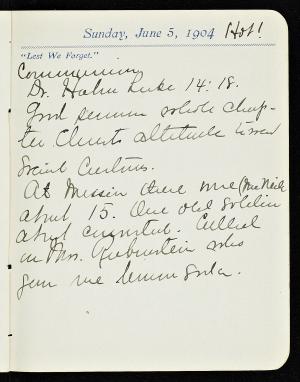 Sunday, June 5, 1904 Hot!
"Lest We Forget."
Communion
Dr. Hahn Luke 14:18.
Good sermon whole chap-
ter. Christs attitude toward
Social Customs.
At Mission there were
about 15. One old soldier
about. Called
on Mrs. Rubinstein who
gave me lemon soda.